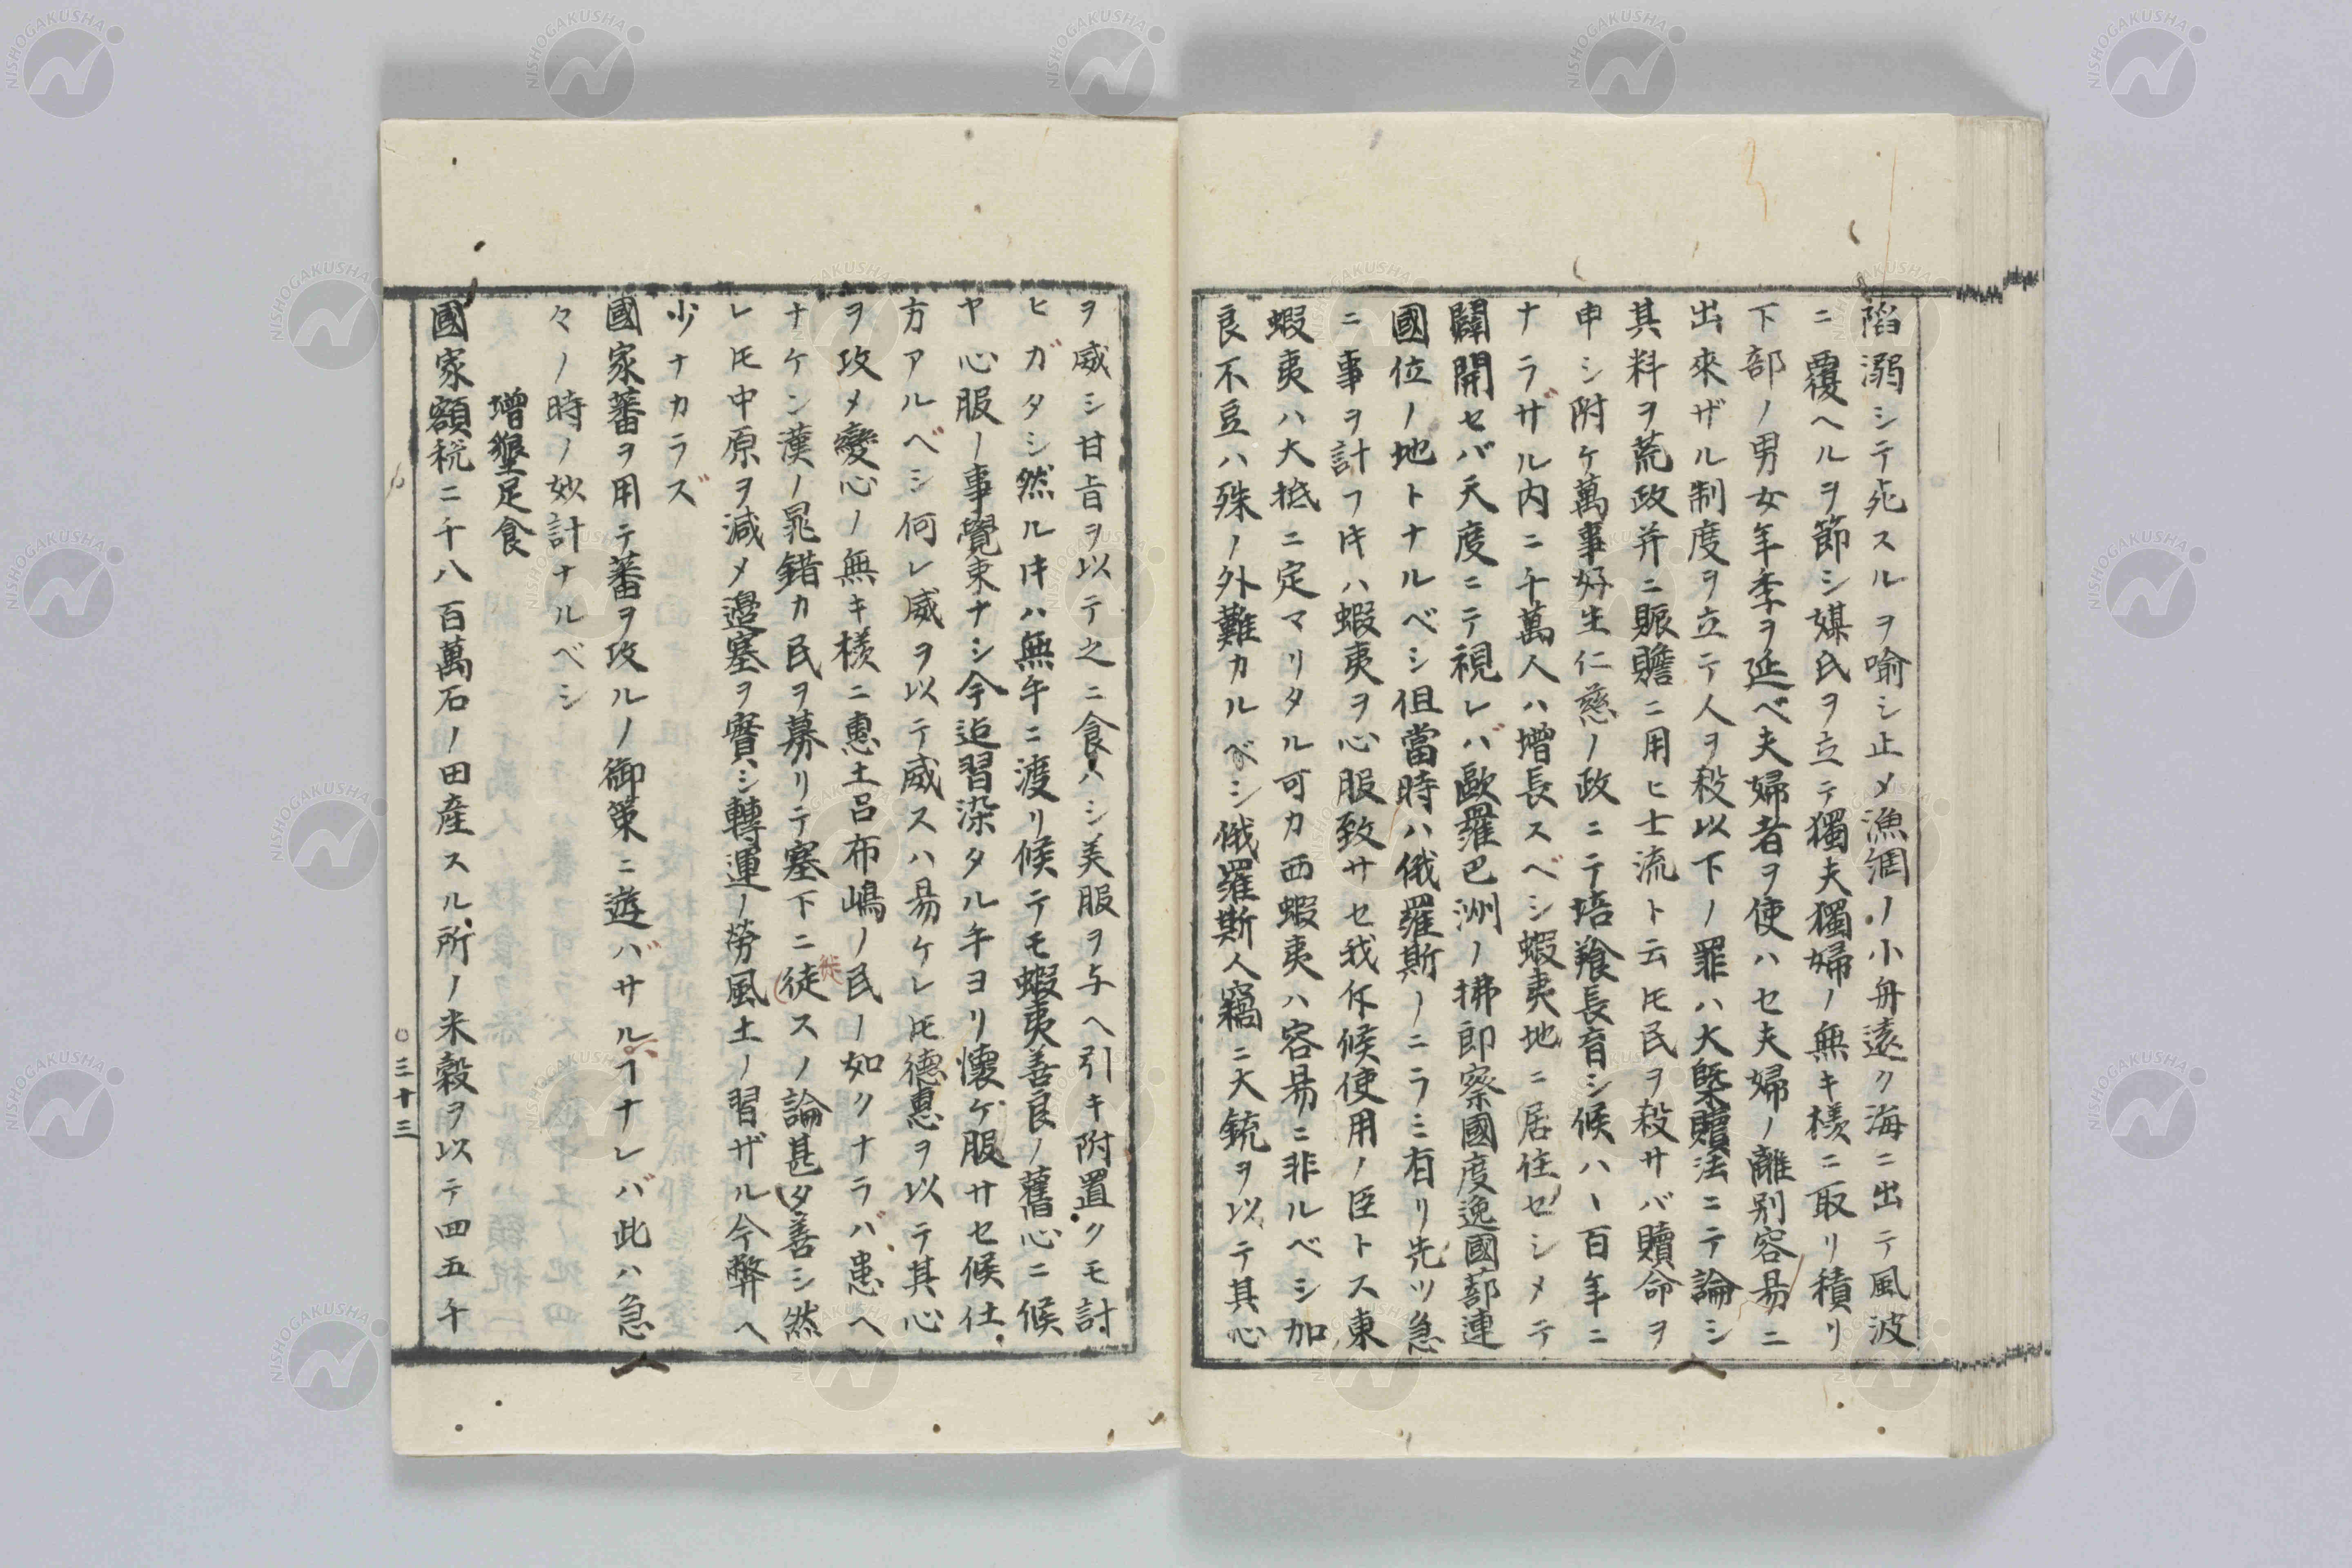 陷溺シテ死スルヲ喻シ止メ漁網ノ小舟遠ク海ニ出テ風波
ニ覆ヘルヲ節シ媒氏ヲ立テ獨夫獨婦ノ無キ樣ニ取リ積リ
下部ノ男女年季ヲ延ベ夫婦者ヲ使ハセ夫婦ノ離別容易ニ
出來ザル制度ヲ立テ人ヲ殺以下ノ罪ハ大槩贖法ニテ論シ
其料ヲ荒政并ニ賑贍ニ用ヒ士流ト云ヒ民ヲ殺サバ贖命ヲ
申シ附ケ萬事好生仁慈ノ政ニテ培養長育シ候ハヽ百年ニ
ナラザル内ニ千萬人ハ增長スベシ蝦夷地ニ居住セシメテ
闢開セバ天度ニテ視レバ歐羅巴洲ノ拂郎察國度逸國蔀連
國位ノ地トナルベシ但當時ハ俄羅斯ノニラミ有リ先ツ急
ニ事ヲ計フ片ハ蝦夷ヲ心服致サセ我斥候使用ノ臣トス東
蝦夷ハ大抵ニ定マリタル可カ西蝦夷ハ容易ニ非ルベシ加
良不豆ハ殊ノ外難カルベシ俄羅斯人竊ニ大銃ヲ以テ其心
ヲ威シ甘旨ヲ以テ之ニ食ハシ美服ヲ与ヘ引キ附置クモ討
ヒガタシ然ル片ハ無年ニ渡リ候テモ蝦夷善良ノ舊心ニ候
ヤ心服ノ事覺束ナシ今迠習染タル年ヨリ懷ゲ服サセ候仕
方アルベシ何レ威ヲ以テ威スハ易ケレ𪜈德惠ヲ以テ其心
ヲ攻メ變心ノ無キ樣ニ惠土呂布嶋ノ民ノ如クナラバ患ヘ
ナケン漢ノ晁錯カ民ヲ募リテ塞下ニ徒スノ論甚タ善シ然
徙
レ𪜈中原ヲ減メ邉塞ヲ實シ轉運ノ勞風土ノ習ザル今弊ヘ
少ナカラズ
國家蕃ヲ用テ蕃ヲ攻ルノ御策ニ遊バサルヿナレバ此ハ急
々ノ時ノ妙計ナルベシ
增墾足食
國家額税ニ千八百萬石ノ田産スル所ノ米穀ヲ以テ四五千
〇三十三
NISHOGAKUSHA